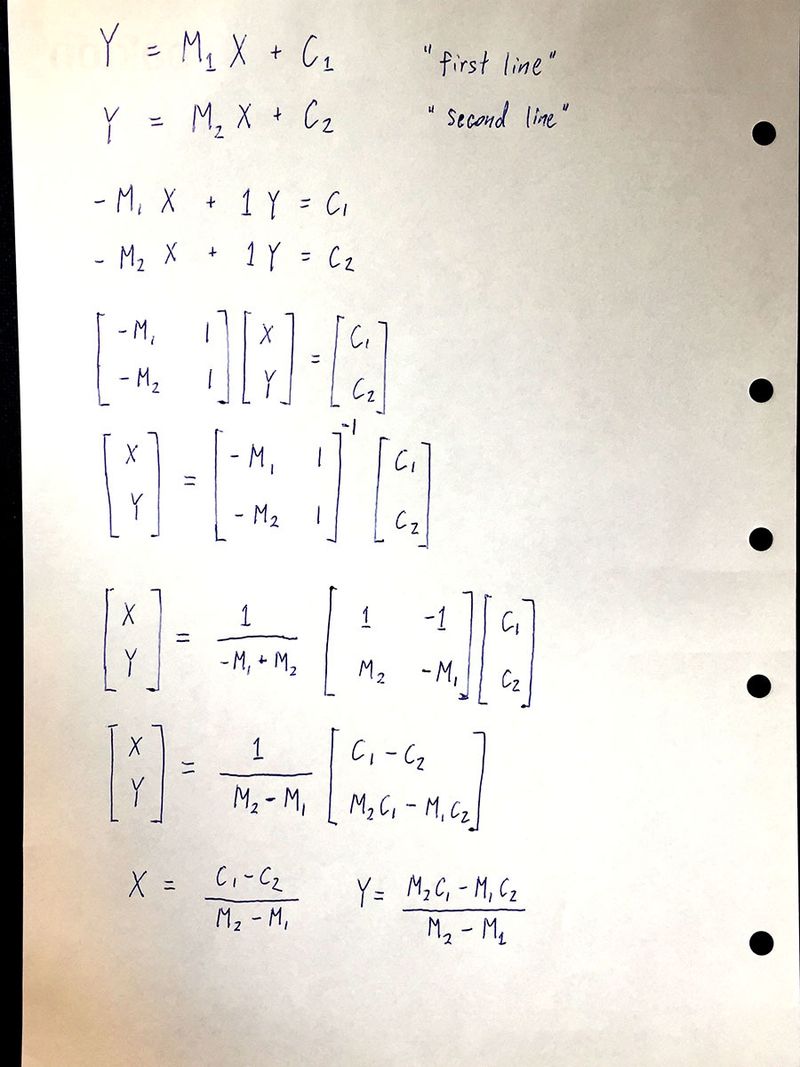 Y = M₁ X + C₁ "first line"
Y = M₂ X + C₂ "second line"
-M₁ X + 1 Y = C₁
-M₂ X + 1 Y = C₂
[-M₁ 1; -M₂ 1] [X; Y] = [C₁; C₂]
[X; Y] = [-M₁ 1; -M₂ 1]⁻¹ [C₁; C₂]
[X; Y] = 1/(-M₁ + M₂) [1 -1; M₂ -M₁] [C₁; C₂]
[X; Y] = 1/(M₂ - M₁) [C₁ - C₂; M₂C₁ - M₁C₂]
X = (C₁ - C₂)/(M₂ - M₁) Y = (M₂C₁ - M₁C₂)/(M₂ - M₁)